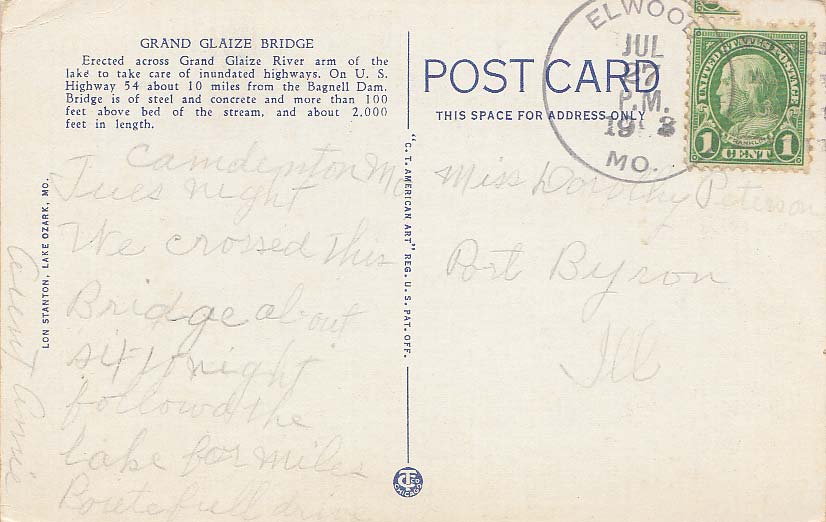 GRAND GLAIZE BRIDGE
Erected across Grand Glaize River arm of the
lake to take care of inundated highways. On U. S.
Highway 54 about 10 miles from the Bagnell Dam.
Bridge is of steel and concrete and more than 100
feet above bed of the stream, and about 2,000
feet in length.
Camdenton Mo
Tues night
We crossed this
Bridge about
night
followd the
lake for miles
drive
Aunt Annie
LON STANTON, LAKE OZARK, MO.
"C. T. AMERICAN ART" REG. U. S. PAT. OFF.
CHICAGO
POST CARD
THIS SPACE FOR ADDRESS ONLY
ELWOOD
JUL
27
P.M.
MO.
UNITED STATES POSTAGE
FRANKLIN
1 CENT 1
Miss Dorothy Peterson
Port Byron
Ill